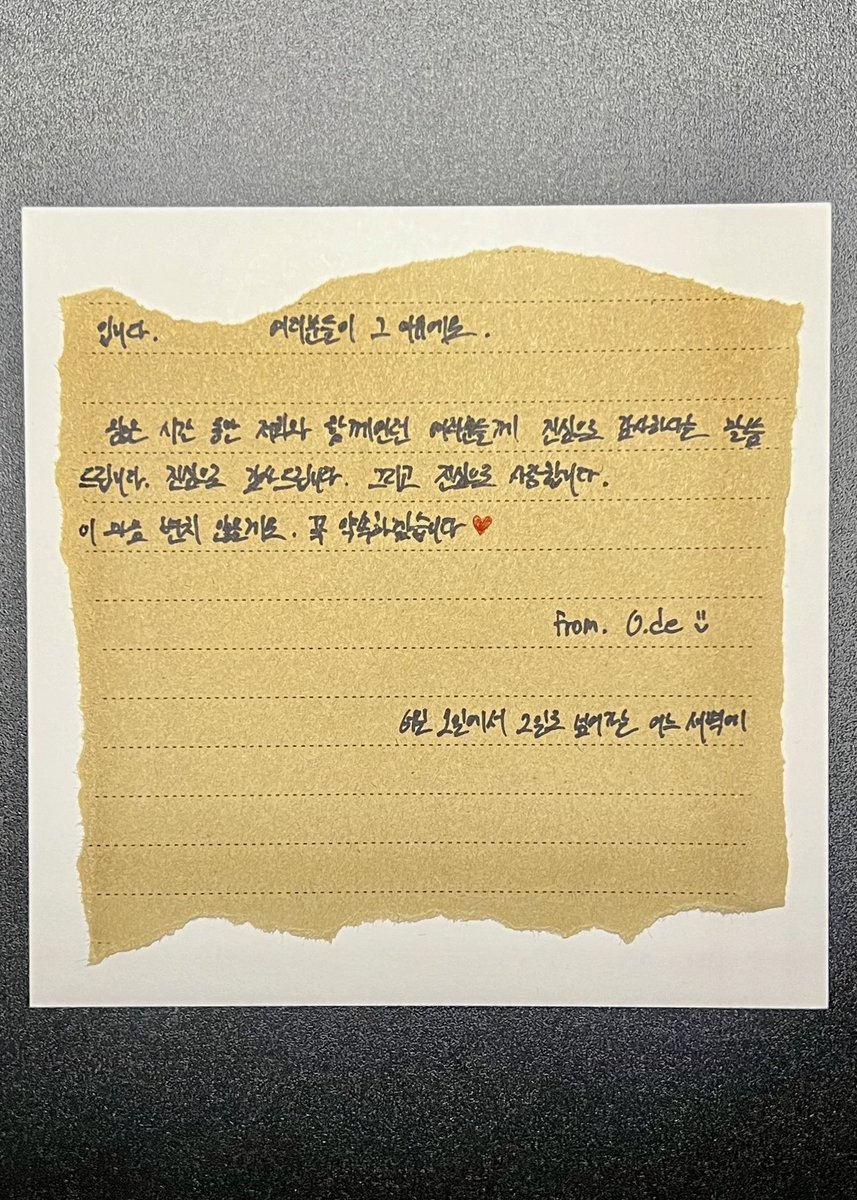 입니다. 여러분들이 그 이유에요.
많은 시간 동안 저희와 함께인 여러분들께 진심으로 감사하다는 말씀
드립니다. 진심으로 감사드립니다. 그리고 진심으로 사랑합니다.
이 마음 변치 않을게요. 꼭 약속하겠습니다 ❤
from. O.de
6월 1일에서 2일로 넘어가는 어느 새벽에